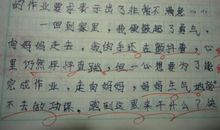 的作业要求表示出了非常不满意……
一回到家里，我便鼓起了勇气，
向妈妈走去，我的手还在颤抖着，心
里仍然怦怦直跳，但一心想要为了能
完成作业，走向妈妈，妈妈生气地说
不去做功课，跑到这里来干什么？这